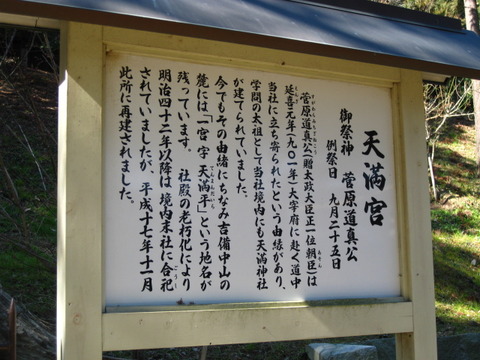 天満宮
御祭神　菅原道真公
例祭日　九月二十五日
菅原道真公(贈太政大臣正一位朝臣)は
延喜元年(九〇一年)大宰府に赴く道中
当社に立ち寄られたという由緒があり、
学問の太祖として当社境内にも天満神社
が建てられていました。
今でもその由緒にちなみ吉備中山の
麓には「宮字　天満平」という地名が
残っています。　社殿の老朽化により
明治四十二年以降は境内末社に合祀
されていましたが、平成十七年十一月
此所に再建されました。